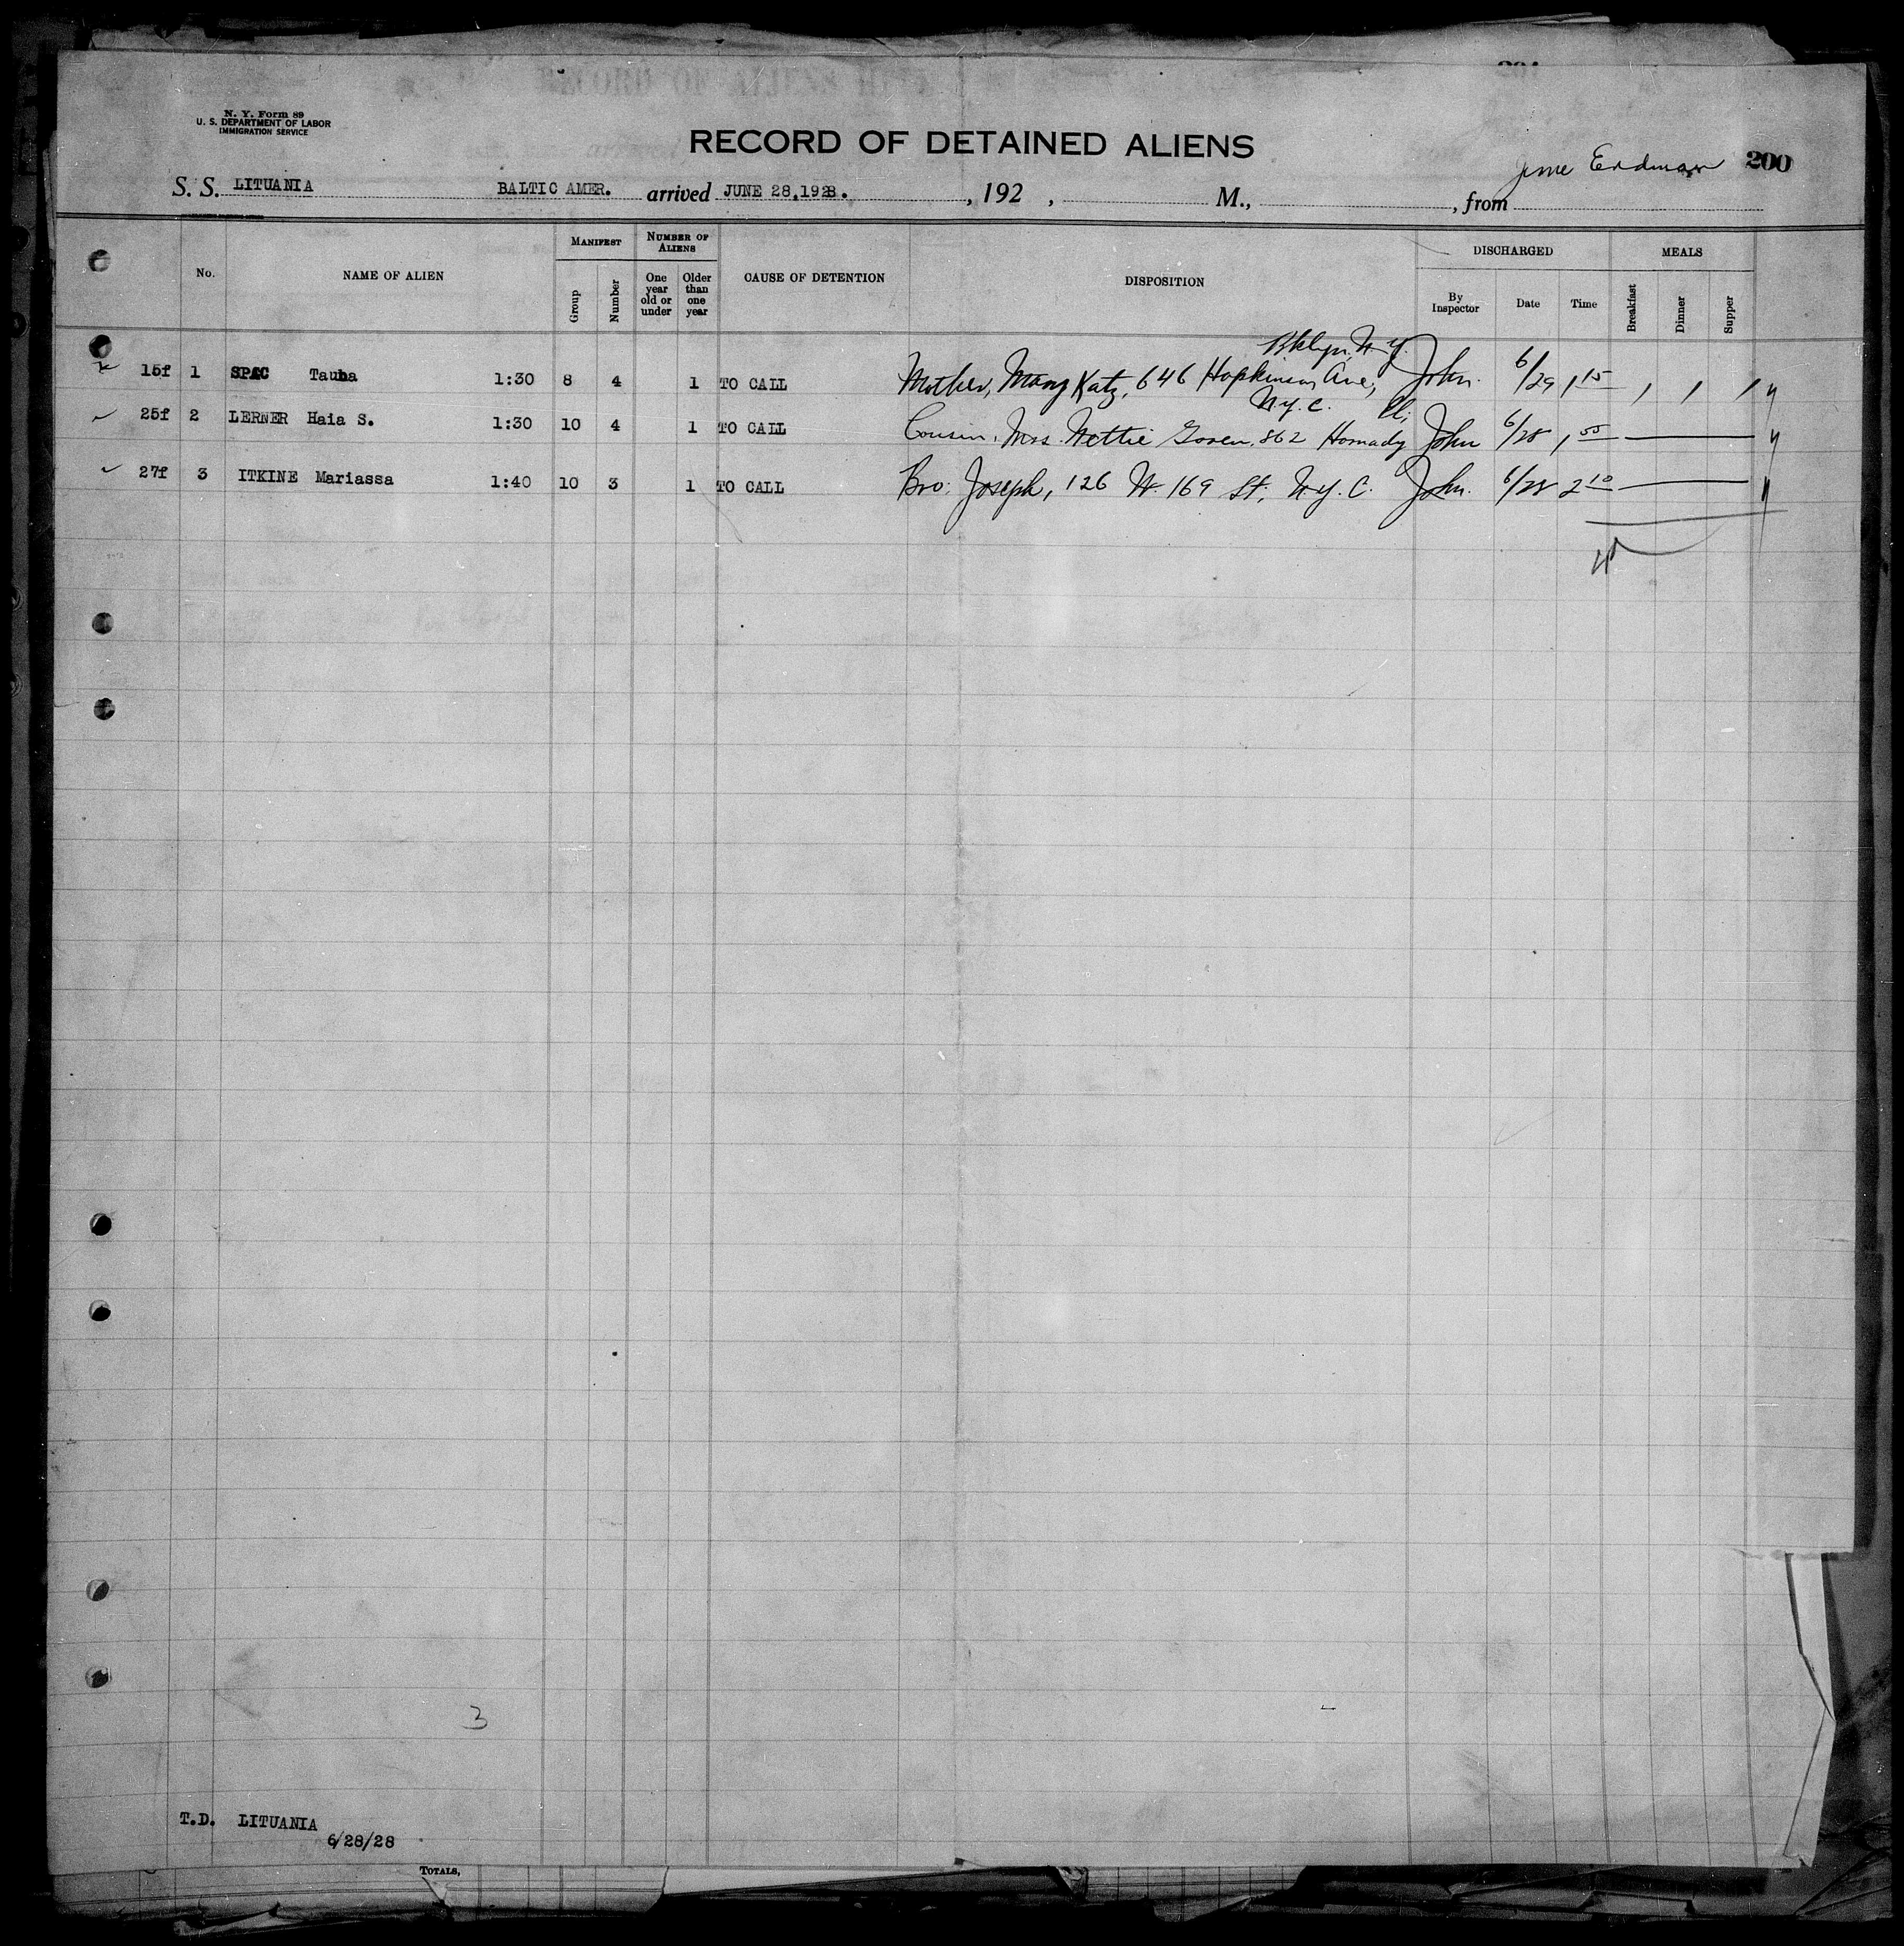 N. Y. Form 89
U. S. DEPARTMENT OF LABOR
IMMIGRATION SERVICE
RECORD OF DETAINED ALIENS
Erdman 200
S. S. LITUANIA BALTIC AMER. arrived JUNE 28,1928. , 192 , M., , from
No. NAME OF ALIEN MANIFEST Group Number NUMBER OF ALIENS One year old or under Older than one year CAUSE OF DETENTION DISPOSITION DISCHARGED By Inspector Date Time MEALS Breakfast Dinner Supper
Bklyn, N.Y.
15f 1 SPAC Tauba 1:30 8 4 1 TO CALL Mother, Mary Katz, 646 Hopkinson Ave, John. 6/29 1 15 1 1 1
N.Y.C. Pl;
25f 2 LERNER Haia S. 1:30 10 4 1 TO CALL Cousin, Mrs. Nettie 862 Hornady John 6/28 1 55
27f 3 ITKINE Mariassa 1:40 10 3 1 TO CALL Bro: Joseph, 126 W. 169 St, N.Y.C. John. 6/28 2 10
3
T.D. LITUANIA
6/28/28
TOTALS,